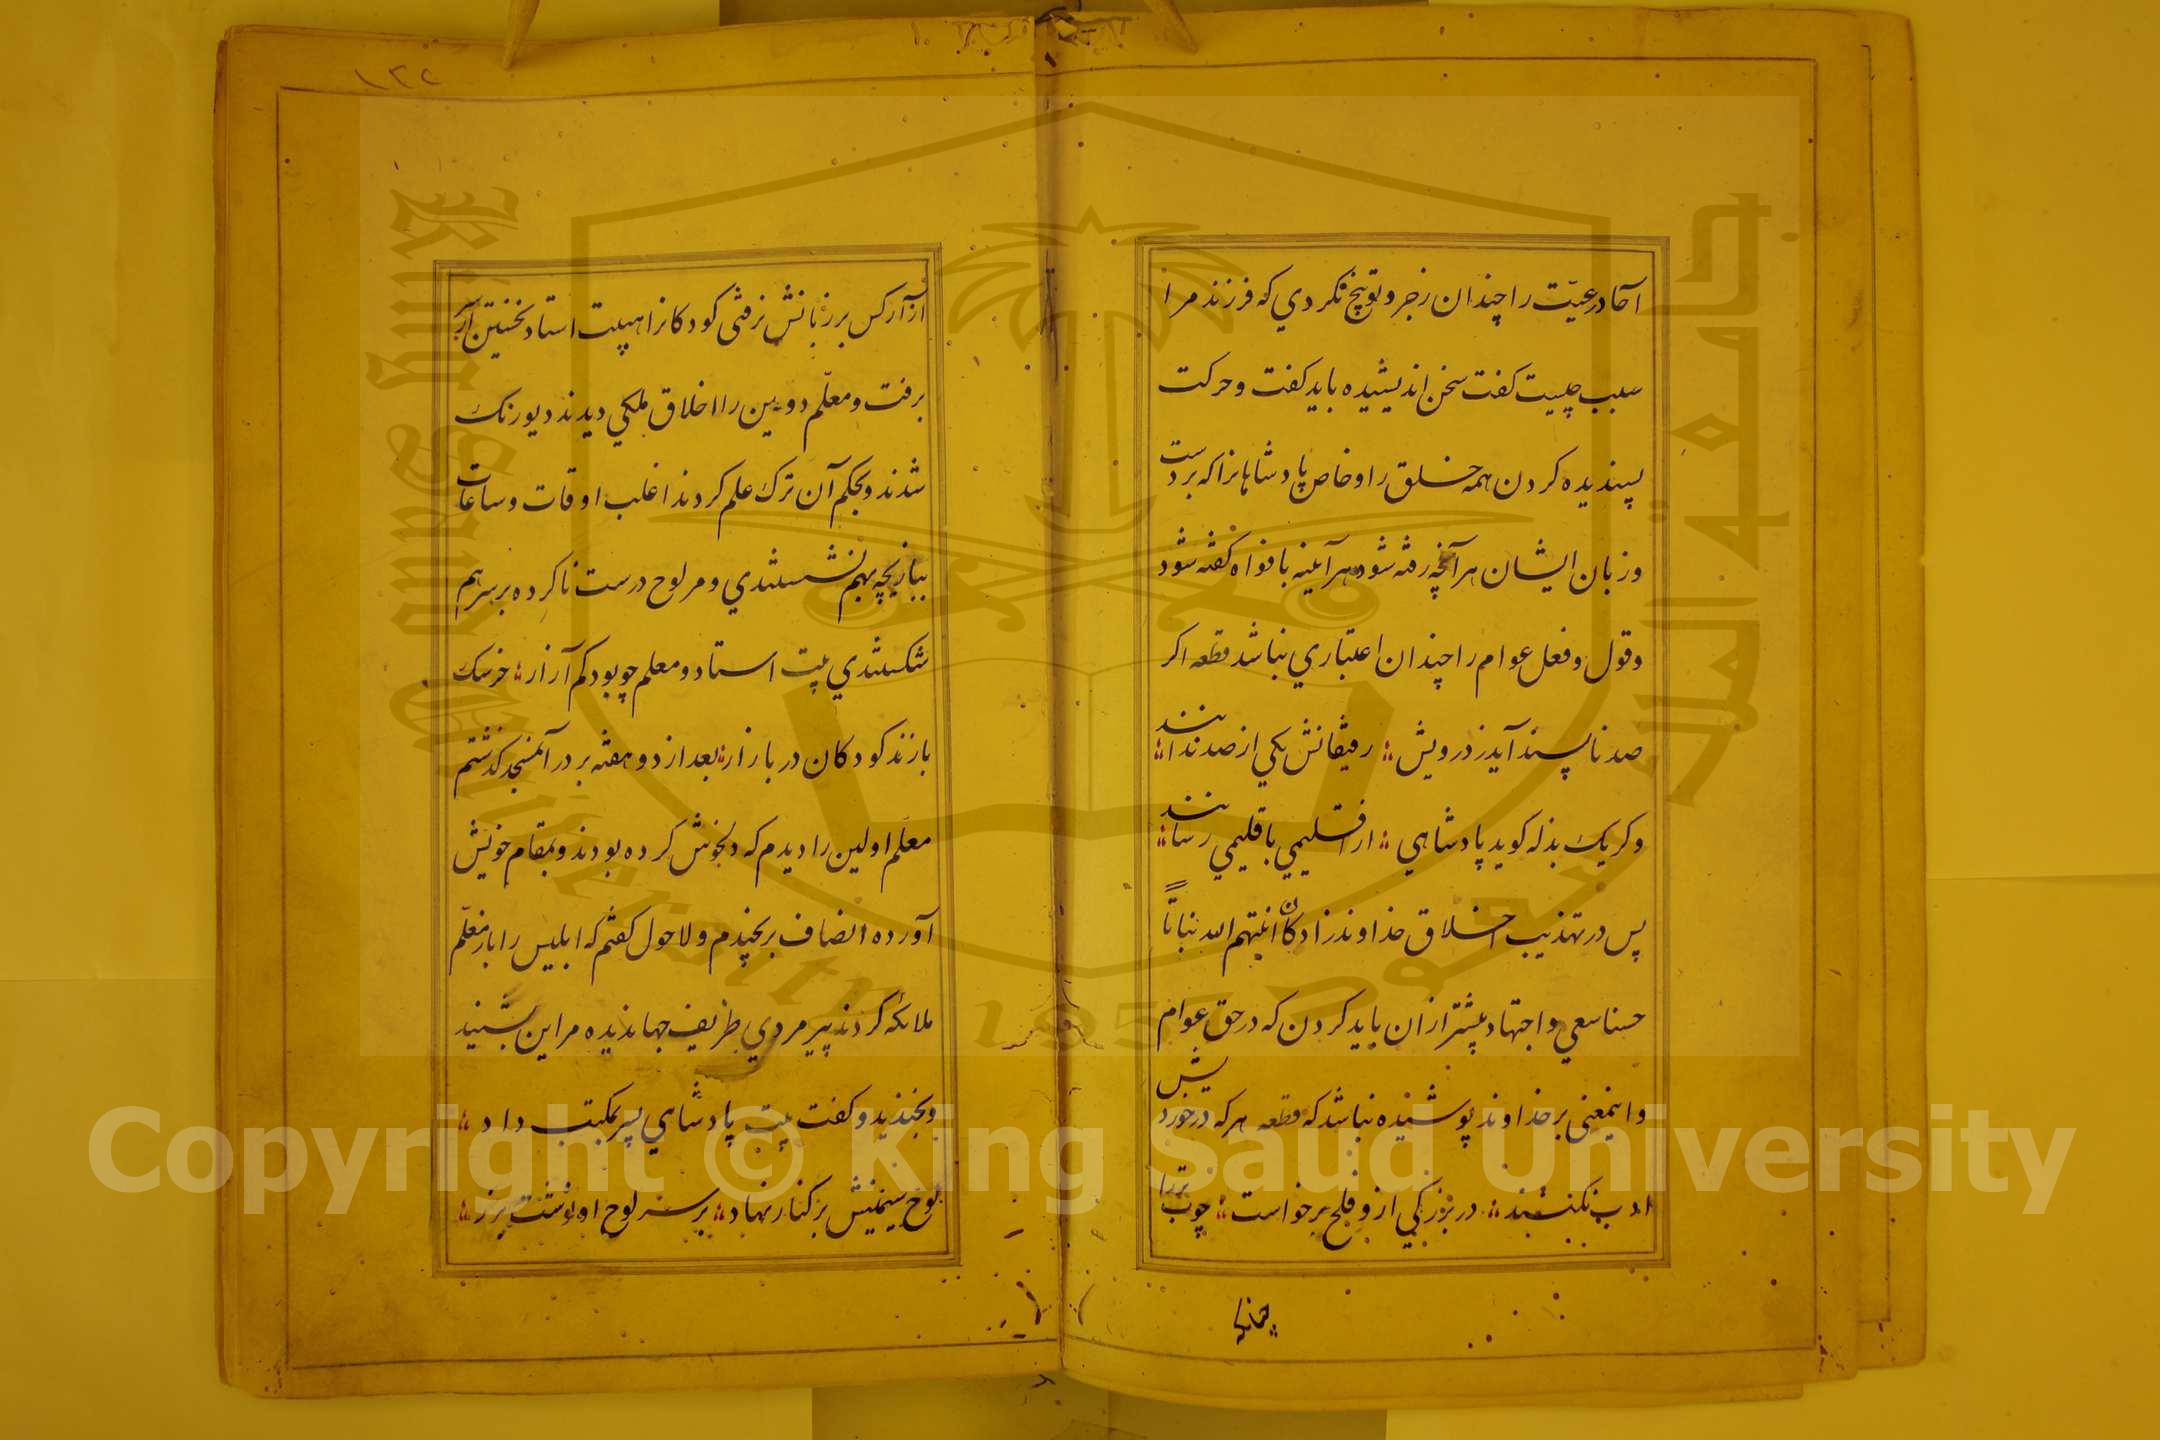 آحاد رعیّت را چندان زجر و توبیخ نکردي که فرزند مرا
سبب چیست کفت سخن اندیشیده باید کفت و حرکت
پسندیده کردن همه خلق را و خاص پادشاهانرا که بر دست
و زبان ایشان هر آنچه رفته شود هر آینه بافواه کفته شود
و قول و فعل عوام را چندان اعتباري نباشد قطعه اکر
صد ناپسند آید ز درویش رفیقانش یکي از صد ندانند
وکر یک بذله کوید پادشاهي از اقلیمي باقلیمي رسانند
پس در تهذیب اخلاق خداوندزادکان انبتهم الله نباتاً
حسنا سعي و اجتهاد بیشتر از ان باید کردن که در حق عوام
و اینمعنی بر خداوند پوشیده نباشد که قطعه هر که در خوردیش
ادب نکنند در بزرکي ازو فلح برخواست چوب تر را
چنانکه
١٢٢
از آرکس بر زبانش نرفتی کودکانرا هیبت استاد نخستین از سر
برفت و معلّم دویین را اخلاق ملکي دیدند دیو رنک
شدند و بحکم آن ترک علم کردند اغلب اوقات و ساعات
ببازیچه بهم نشستندي و مر لوح درست ناکرده بر سر هم
شکستندي بیت استاد و معلم چو بود کم آزار خرسک
بازند کودکان در بازار بعد از دو هفته بر در آنمسجد کذشتم
معلّم اولین را دیدم که دلخوش کرده بودند و بمقام خویش
آورده انصاف برنجیدم و لاحول کفتم که ابلیس را باز معلّم
ملائکه کردند پیر مردي ظریف جهاندیده مر این بشنید
و بخندید و کفت بیت پادشاهي پسر بمکتب داد
لوح سیمینش بر کنار نهاد بر سر لوح او نوشت بزر
King Saud University
جامعة الملك سعود
1957
Copyright © King Saud University